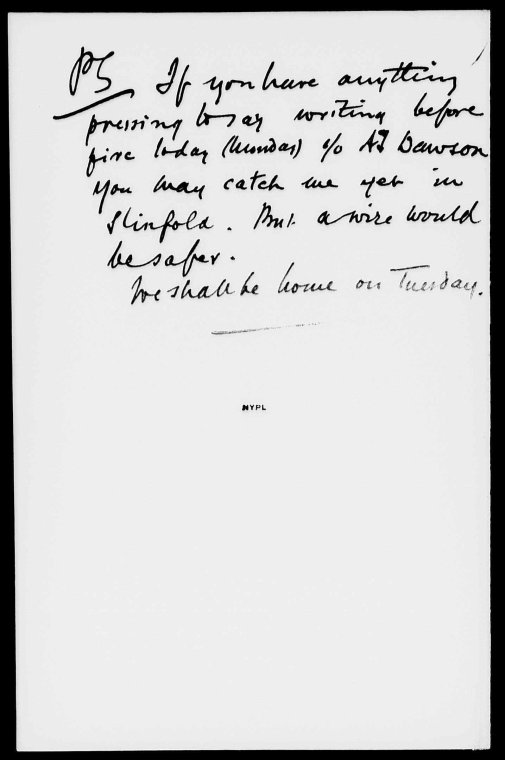 PS If you have anything
pressing to say writing before
five today (Monday) c/o AJ Dawson
you may catch me yet in
Slinfold. But a wire would
be safer.
We shall be home on Tuesday.
NYPL